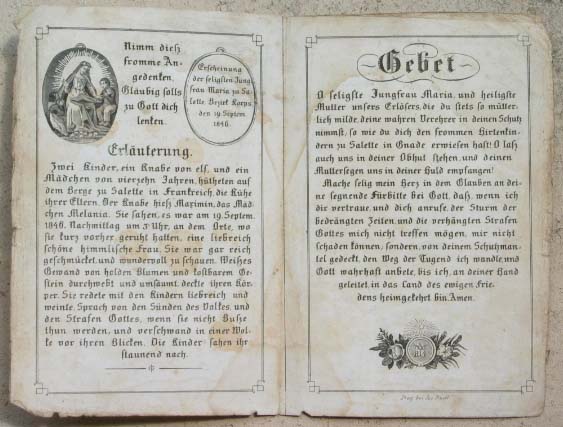 Nimm dieß
fromme An-
gedenken,
Gläubig solls
zu Gott dich
lenken.
Erscheinung
der seligsten Jung
frau Maria zu Sa-
lette, Bezirk Korps,
den 19 Septem.
1846.
Erläuterung.
Zwei Kinder, ein Knabe von elf, und ein
Mädchen von vierzehn Jahren, hütheten auf
dem Berge zu Salette in Frankreich die Kühe
ihrer Eltern. Der Knabe hieß Maximin, das Mäd-
chen Melania. Sie sahen, es war am 19. Septem.
1846. Nachmittag um 3 Uhr, an dem Orte, wo
sie kurz vorher geruht hatten, eine liebreich
schöne himmlische Frau. Sie war gar reich
geschmückt und wundervoll zu schauen. Weißes
Gewand von holden Blumen und kostbarem Ge-
stein durchwebt und umsäumt, deckte ihren Kör-
per. Sie redete mit den Kindern liebreich und
weinte. Sprach von den Sünden des Volkes und
den Strafen Gottes, wenn sie nicht Buße
thun werden, und verschwand in einer Wol-
ke vor ihren Blicken. Die Kinder sahen ihr
staunend nach.
Gebet
O seligste Jungfrau Maria, und heiligste
Mutter unsers Erlösers, die du stets so mütter-
lich milde, deine wahren Verehrer in deinen Schutz
nimmst, so wie du dich den frommen Hirtenkin-
dern zu Salette in Gnade erwiesen hast! O laß
auch uns in deiner Obhut stehen, und deinen
Muttersegen uns in deiner Huld empfangen!
Mache selig mein Herz in dem Glauben an dei-
ne segnende Fürbitte bei Gott, daß, wenn ich
dir vertraue und dich anrufe, der Sturm der
bedrängten Zeiten und die verhängten Strafen
Gottes mich nicht treffen mögen, mir nicht
schaden können, sondern, von deinem Schutzman-
tel gedeckt, den Weg der Tugend ich wandle und
Gott wahrhaft anbete, bis ich, an deiner Hand
geleitet, in das Land des ewigen Frie-
dens heimgekehrt bin. Amen.
Prag bei